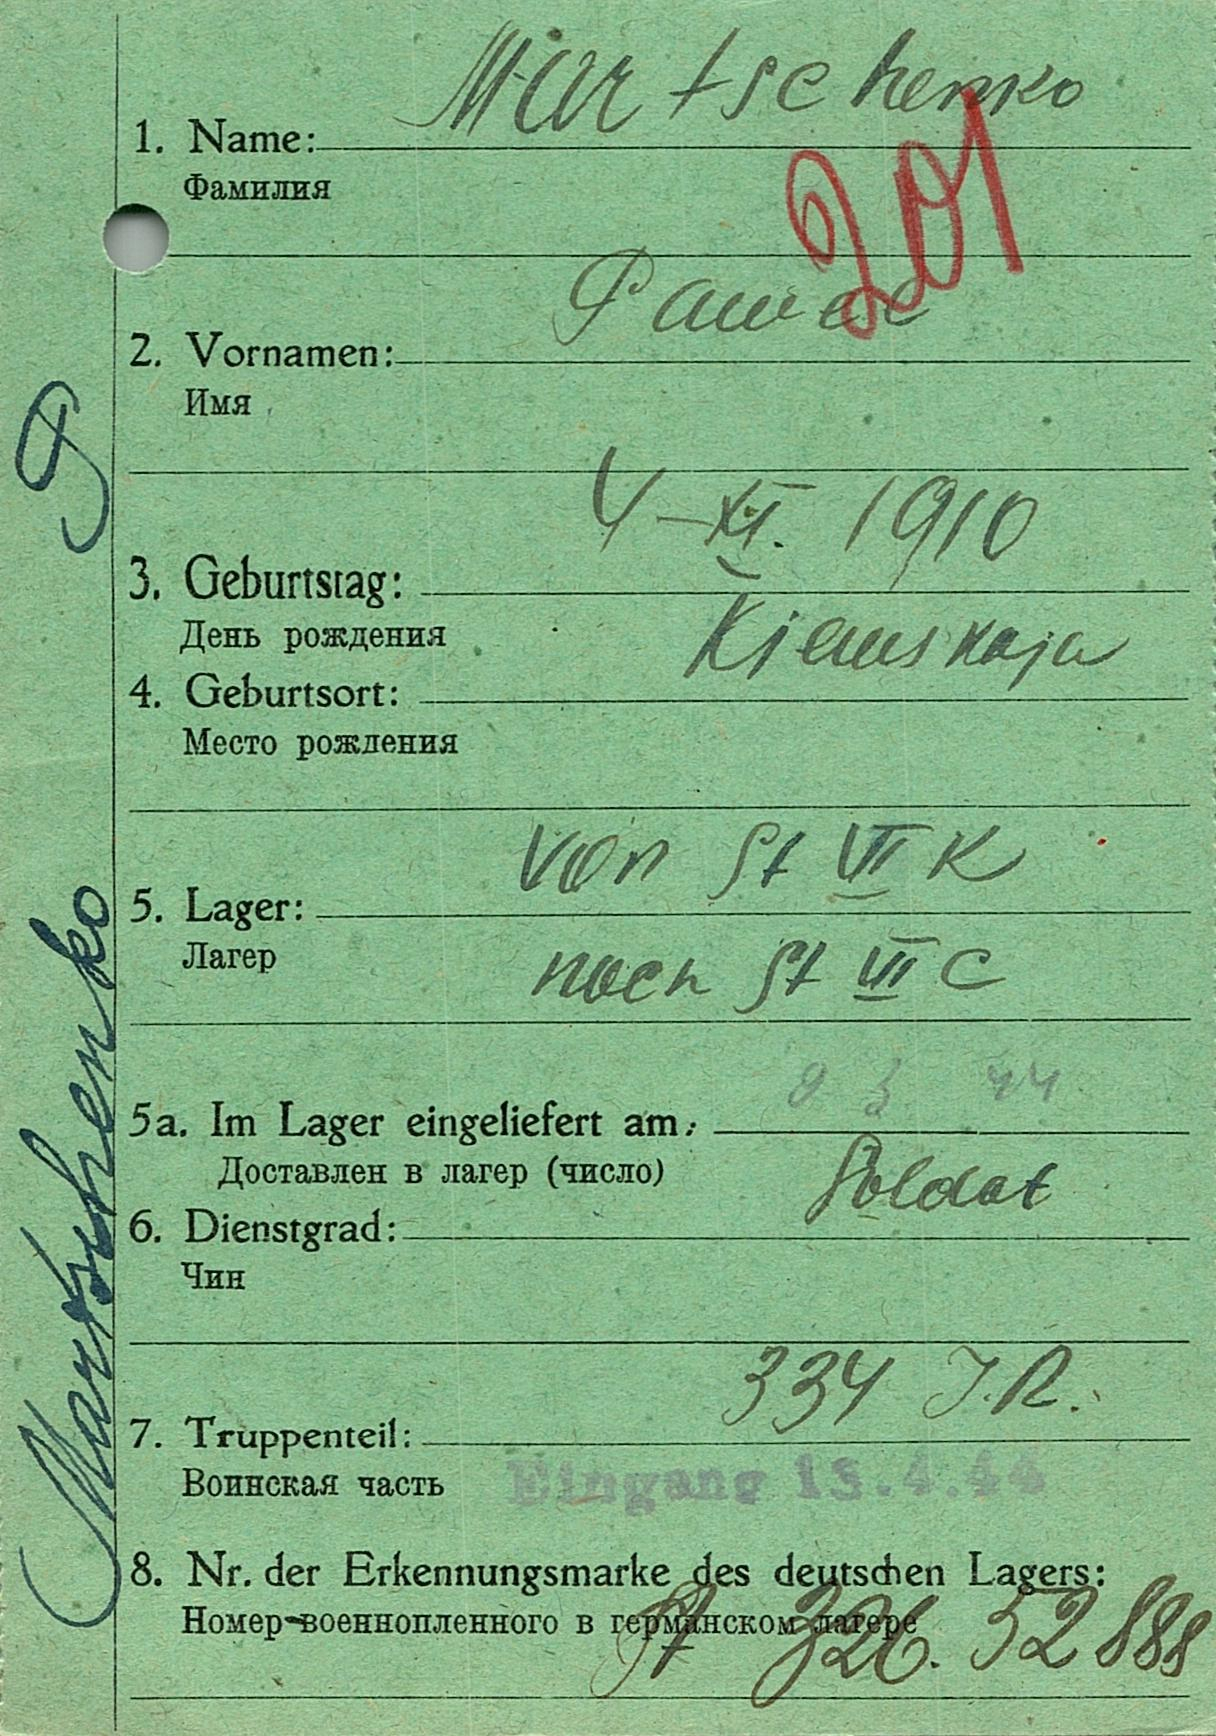 Martschenko
1. Name:
Фамилия
201
Pawel
2. Vornamen:
Имя
4-XI. 1910
3. Geburtstag:
День рождения
Kiewskaja
4. Geburtsort:
Место рождения
von St VI K
5. Lager:
Лагер
nach St VI C
9 3 44
5a. Im Lager eingeliefert am:
Доставлен в лагер (число)
Soldat
6. Dienstgrad:
Чин
334 I.R.
7. Truppenteil:
Воинская часть
Eingang 13.4.44
8. Nr. der Erkennungsmarke des deutschen Lagers:
Номер военнопленного в германском лагере
St 326. 52888
Martschenko P